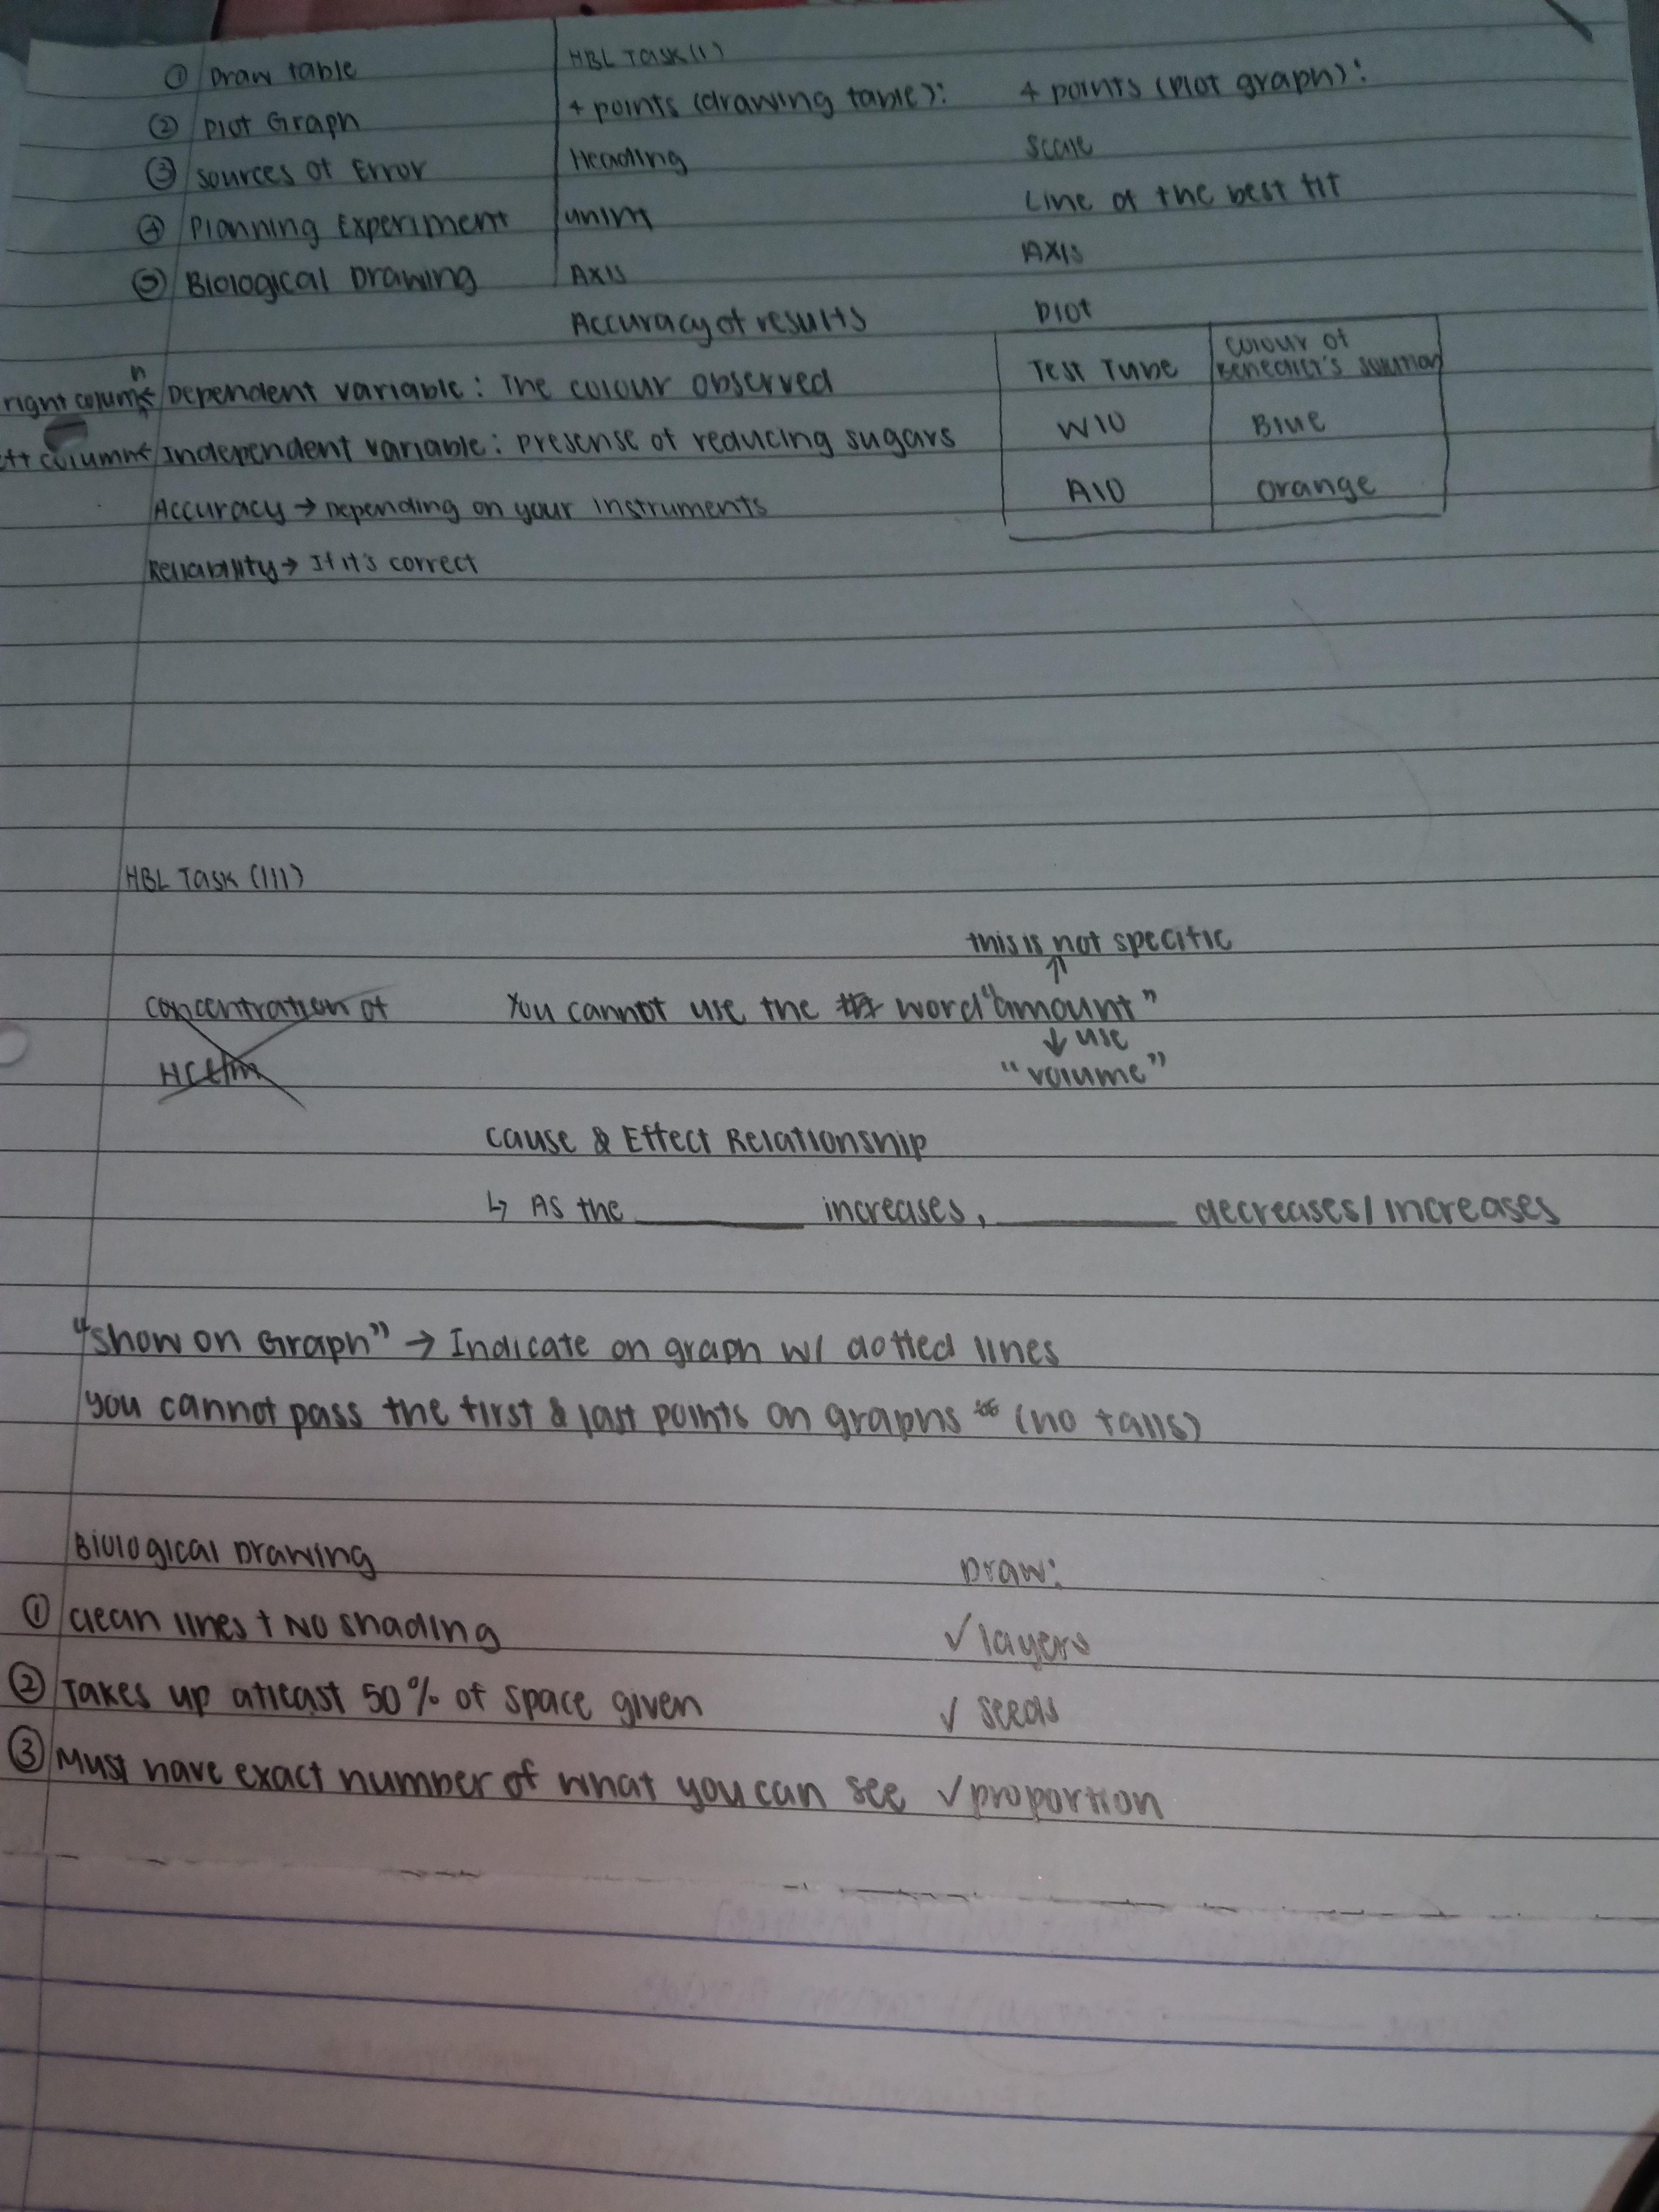 ① Draw table
② Plot Graph
③ Sources of Error
④ Planning Experiment
⑤ Biological Drawing
HBL Task (1)
4 points (drawing table):
Heading
Axis
Accuracy of results
4 points (plot graph):
Scale
Line of the best fit
Axis
Plot
right column Dependent variable: The colour observed
columns Independent variable: Presense of reducing sugars
Accuracy → Depending on your instruments
Reliability → If it's correct
Test Tube Colour of Benedict's solution
W10 Blue
A10 Orange
HBL Task (III)
this is not specific
↑
Concentration of
You cannot use the word "amount"
↓ use
"volume"
Cause & Effect Relationship
↳ As the ________ increases, ________ decreases/increases
"Show on Graph" → Indicate on graph w/ dotted lines
you cannot pass the first & last points on graphs (no tails)
Biological Drawing
① Clean lines + No shading
② Takes up atleast 50% of space given
③ Must have exact number of what you can see
Draw:
✓ layers
✓ seeds
✓ proportion